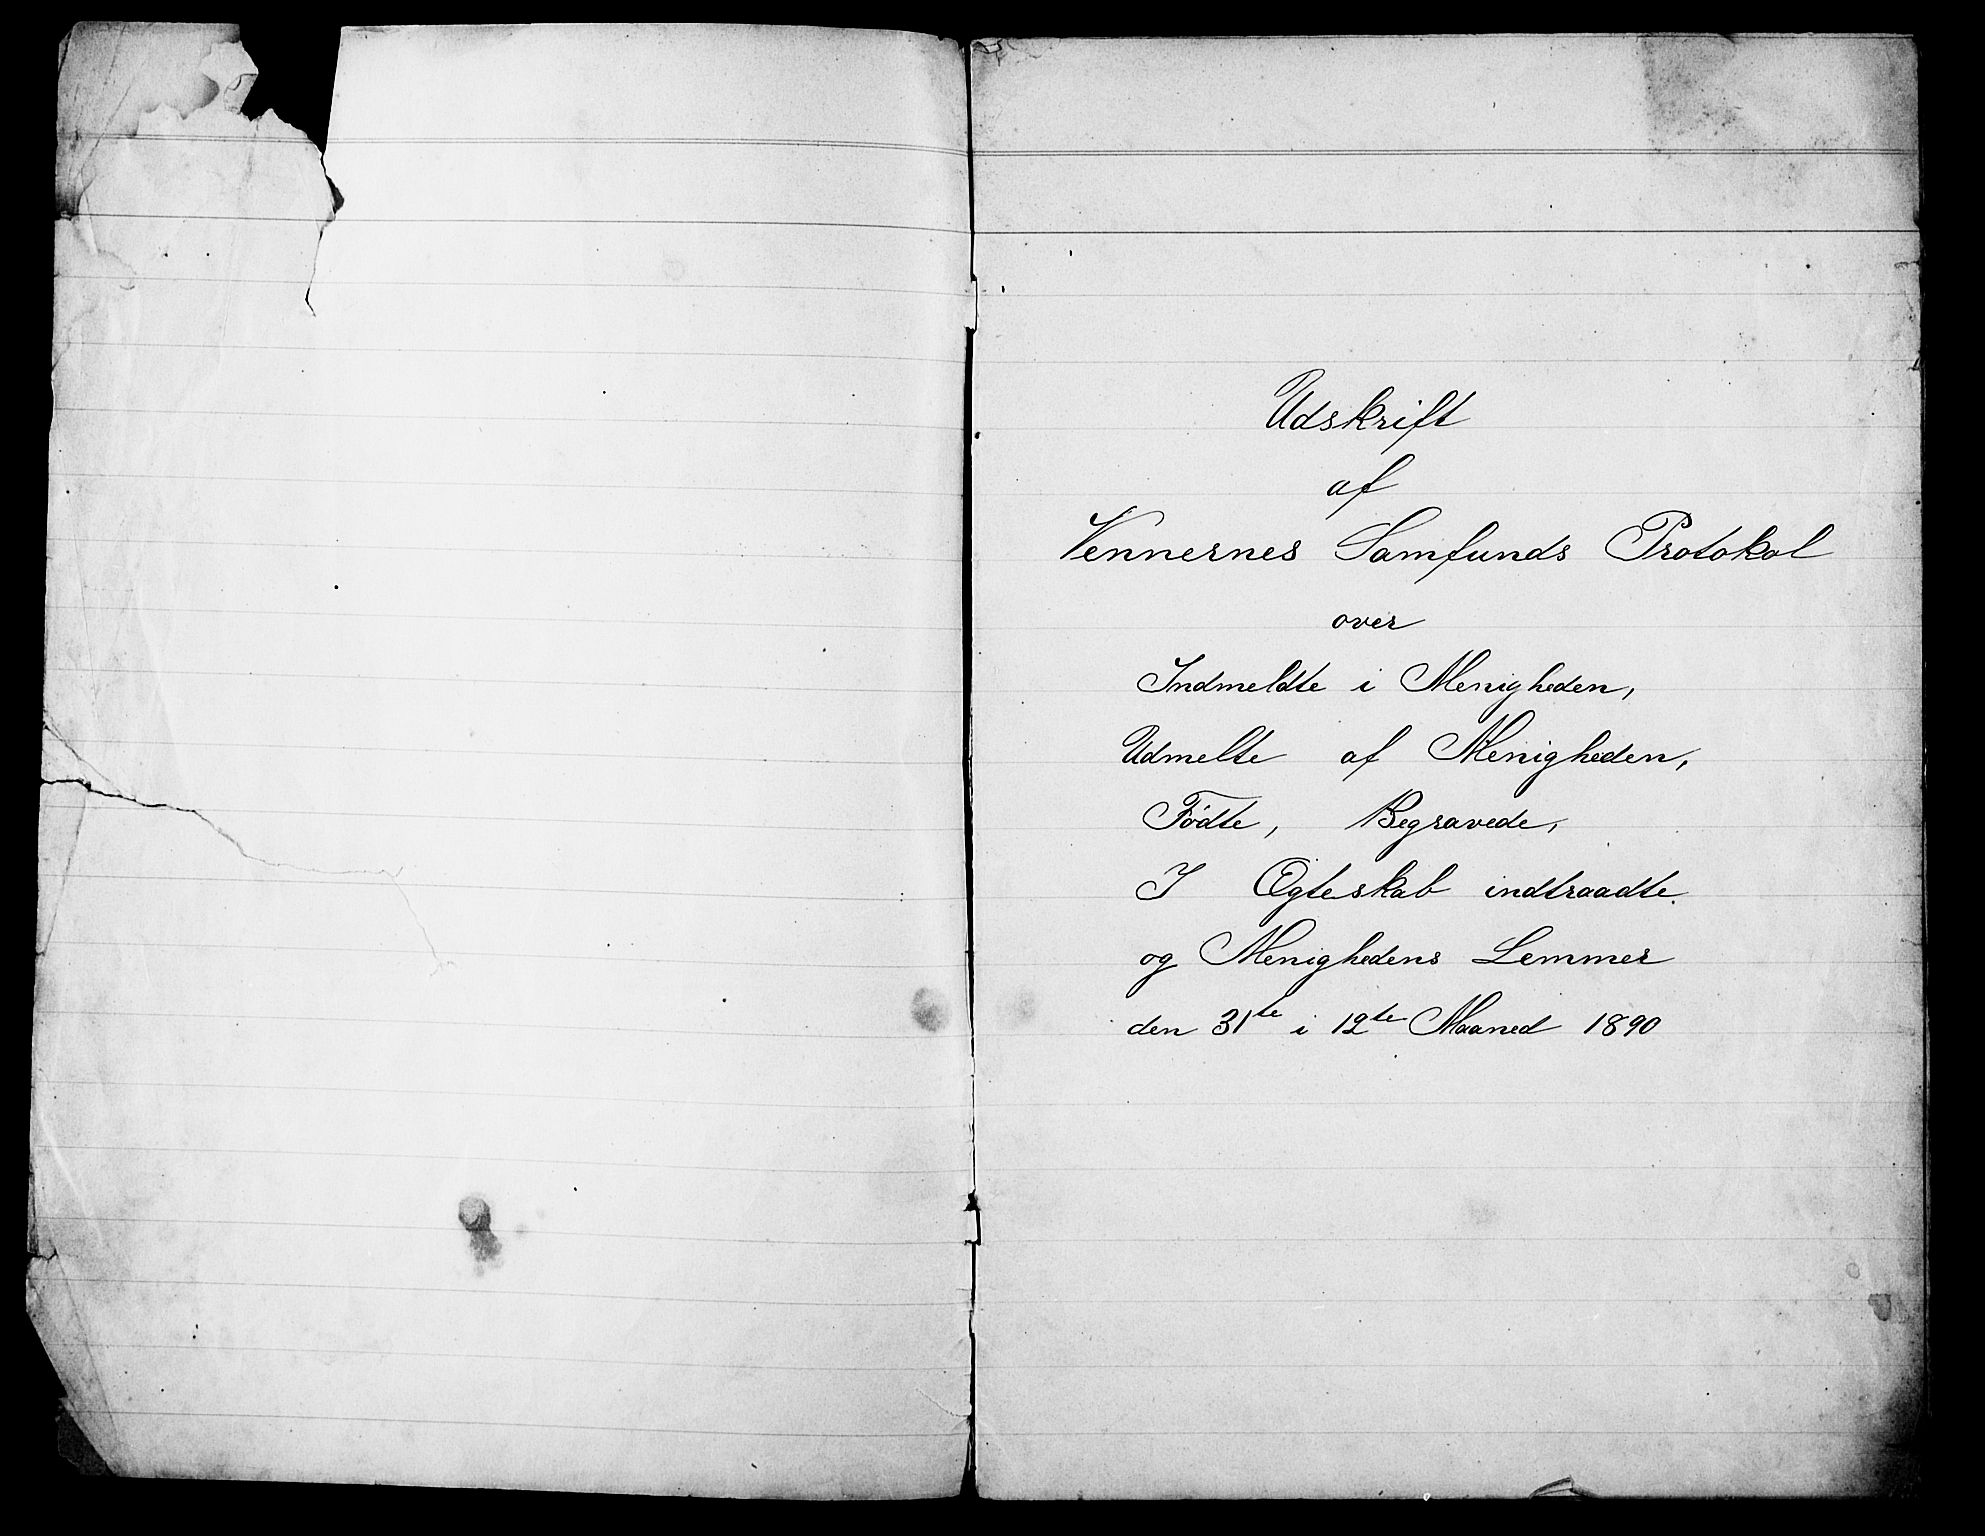 Udskrift
af
Vennernes Samfunds Protokol
over
Indmeldte i Menigheden,
Udmelte af Menigheden,
Fødte, Begravede,
I Ægteskab indtraadte.
og Menighedens Lemmer
den 31te i 12te Maaned 1890